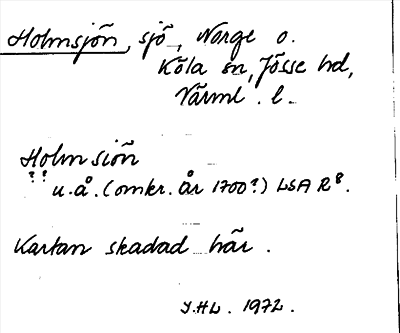 Holmsjön, sjö, Norge o.
Köla sn, Jösse hd,
Värml. l.
Holmsiön
? ? u.å. (omkr. år 1700?) LSA R8.
Kartan skadad här.
J.HL. 1972.